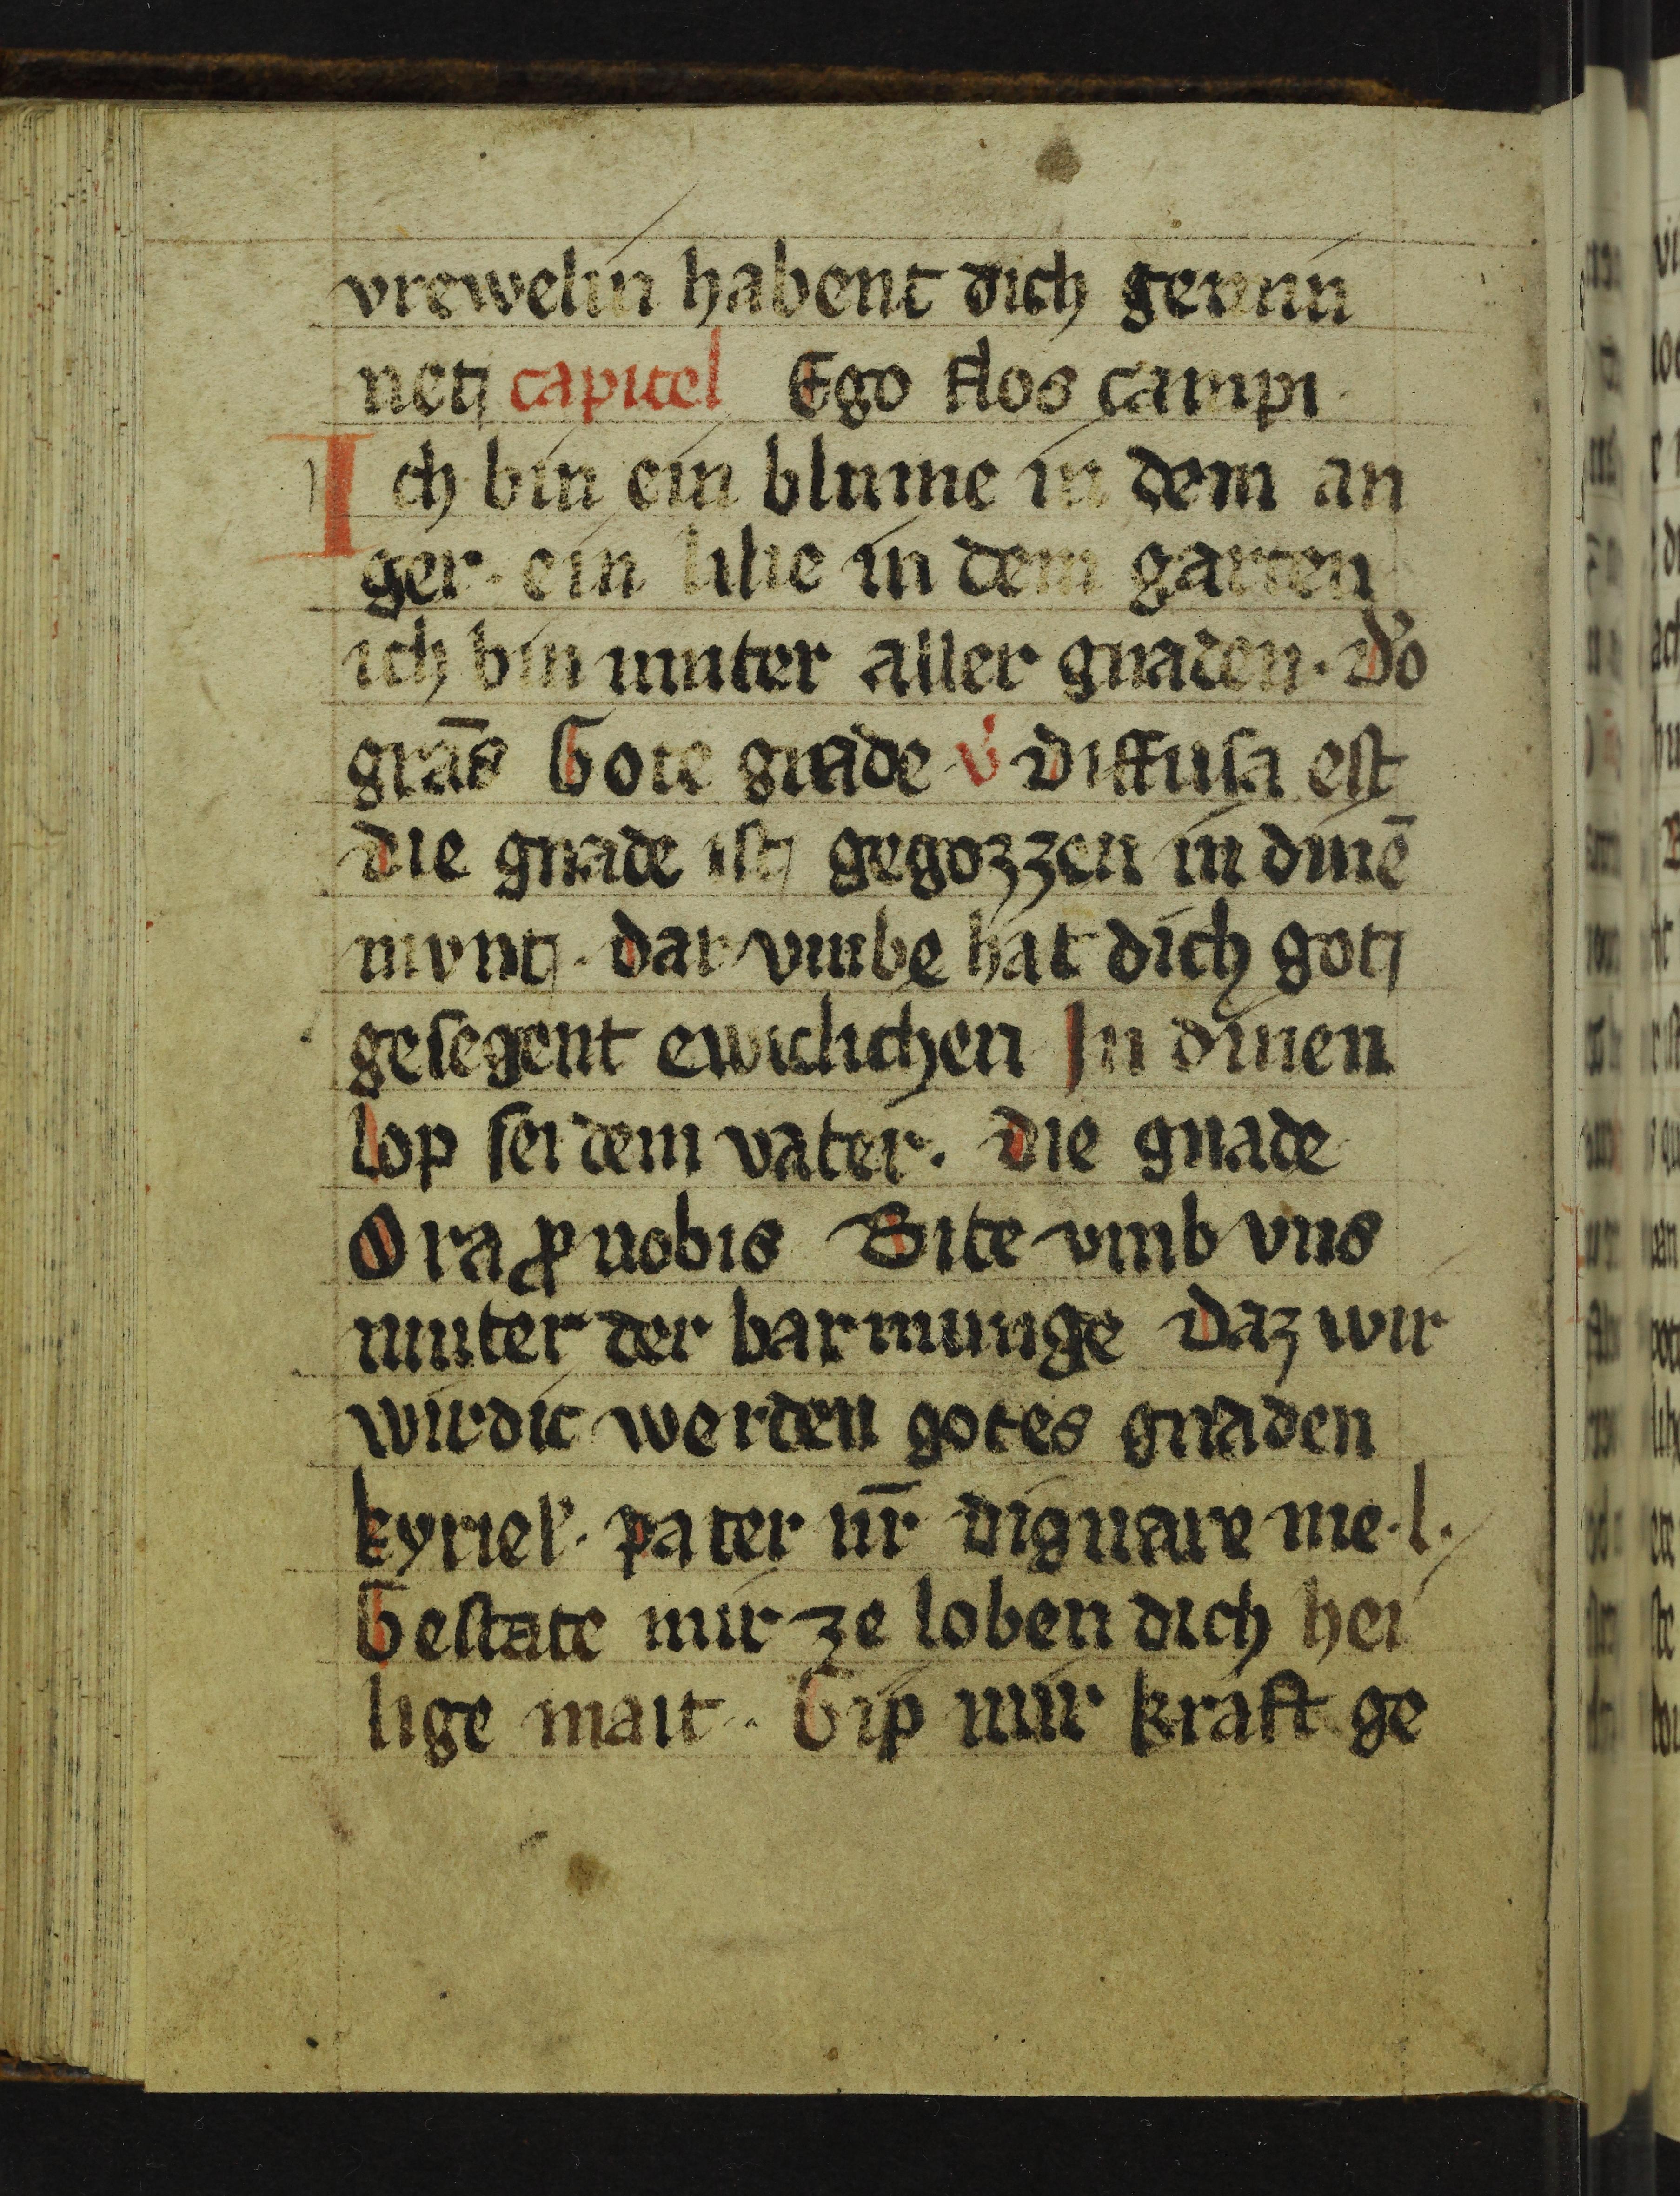 vrewelin habent dich gevnn
net capitel Ego flos campi
Ich bin ein blume in dem an
ger · ein lilie in dem garten
ich bin muter aller gnaden · Do
gr̄as Gote gnade v̇ Diffusa est
die gnade ist gegozzen in dinē
mvnt · dar vmbe hat dich got
gesegent ewiclichen In dinen
lop sei dem vater · die gnade
Ora ꝓ nobis Bite vmb vns
muter der barmunge Daz wir
wirdic werden gotes gnaden
kyriel' · pater nr̄ dignare me · l ·
Gestate mir ze loben dich hei
lige mait · Gip mir kraft ge